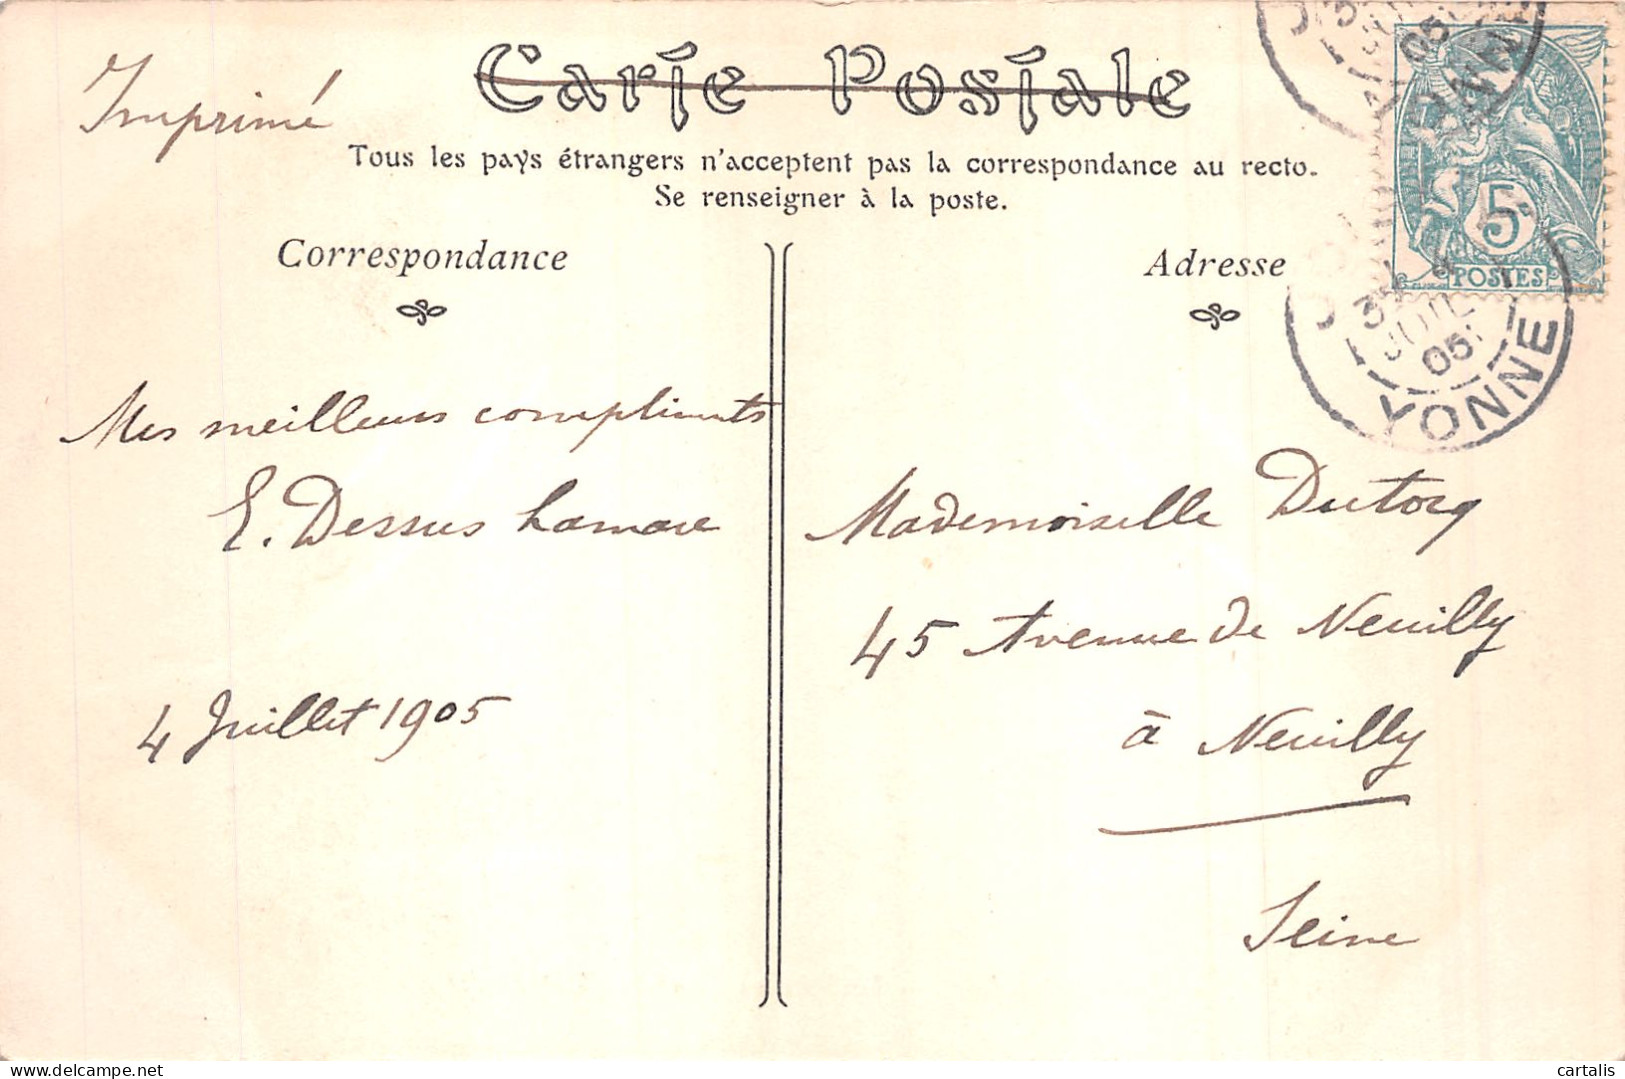 Imprimé
Carte Postale
Tous les pays étrangers n'acceptent pas la correspondance au recto.
Se renseigner à la poste.
Correspondance
Adresse
5
POSTES
JUIL
05
YONNE
Mes meilleurs compliments
E. Dessus Lamare
4 Juillet 1905
Mademoiselle Dutocq
45 Avenue de Neuilly
à Neuilly
Seine
delcampe.net
cartalis